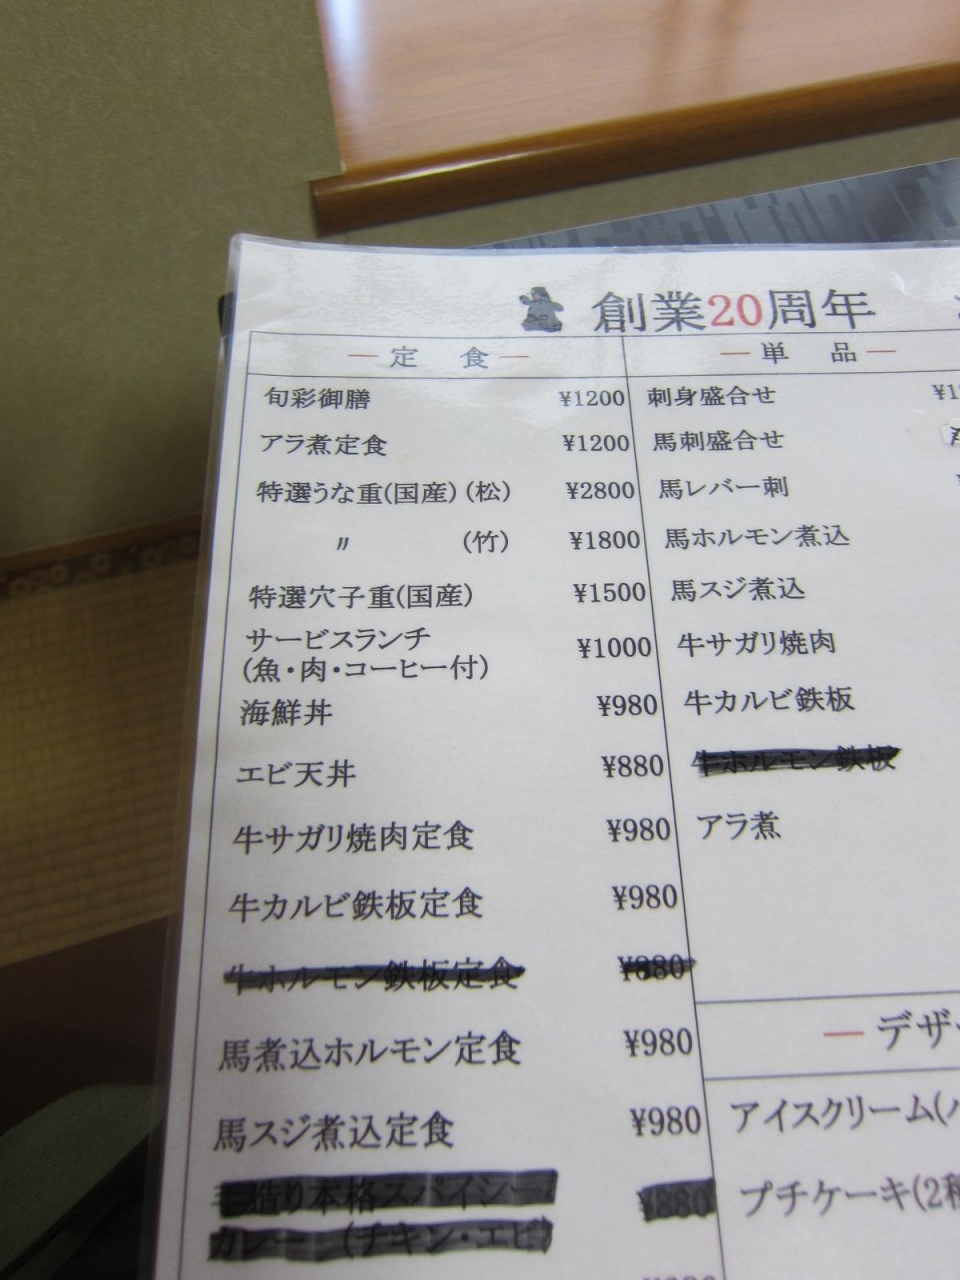 創業20周年
定食
旬彩御膳 ¥1200
アラ煮定食 ¥1200
特選うな重(国産)(松) ¥2800
〃 (竹) ¥1800
特選穴子重(国産) ¥1500
サービスランチ ¥1000
(魚・肉・コーヒー付)
海鮮丼 ¥980
エビ天丼 ¥880
牛サガリ焼肉定食 ¥980
牛カルビ鉄板定食 ¥980
牛ホルモン鉄板定食 ¥880
馬煮込ホルモン定食 ¥980
馬スジ煮込定食 ¥980
手造り本格スパイシー ¥880
カレー (チキン・エビ)
単品
刺身盛合せ
馬刺盛合せ
馬レバー刺
馬ホルモン煮込
馬スジ煮込
牛サガリ焼肉
牛カルビ鉄板
牛ホルモン鉄板
アラ煮
デザ
アイスクリーム(
プチケーキ(2種